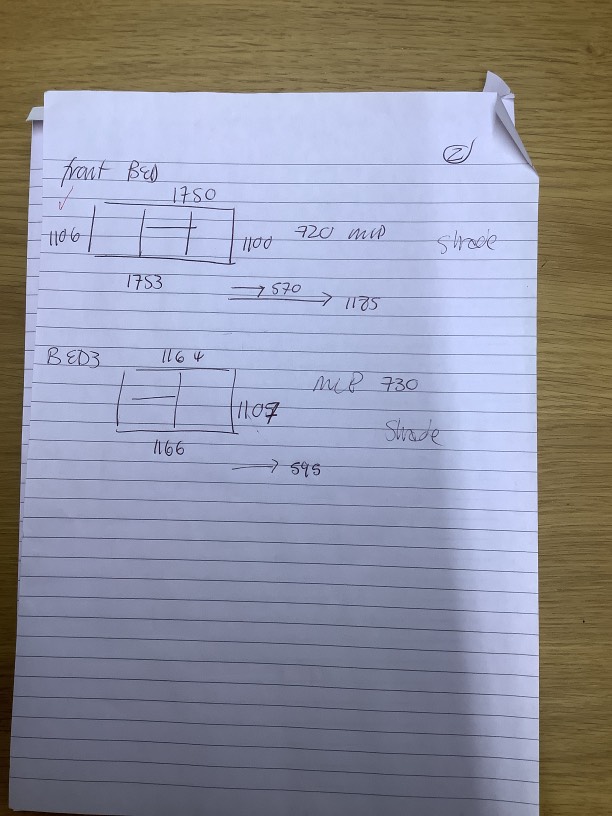 ②
front BED
1750
1106 1100 720 MLP Shade
1753
→ 570
→ 1185
BED3 1164
MLP 730
1107
Shade
1166
→ 595